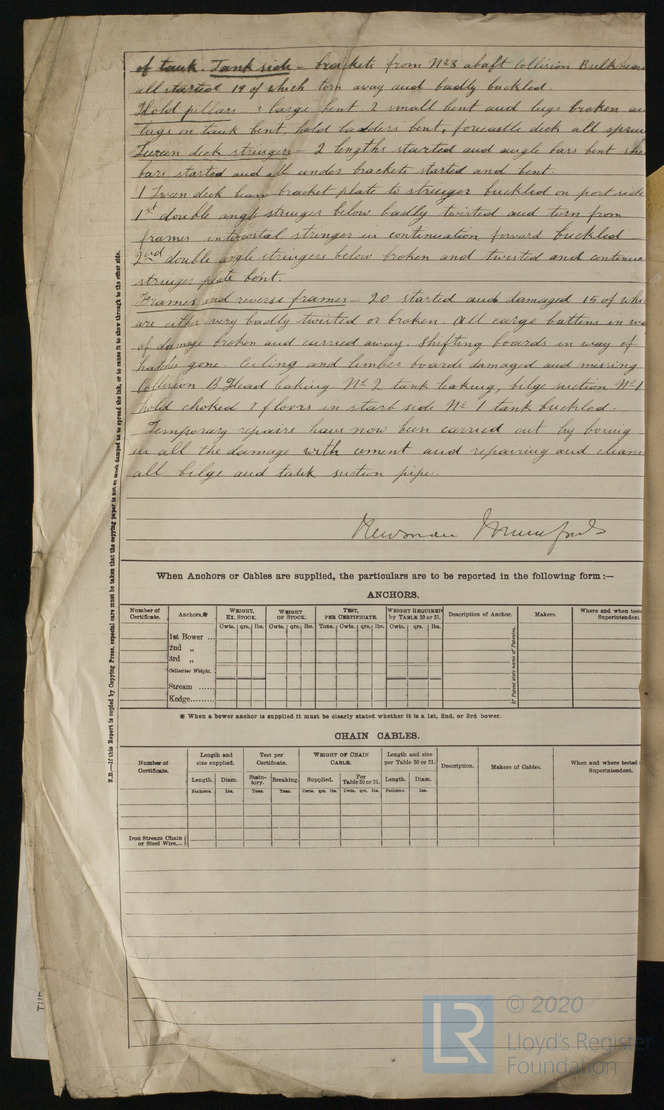 of tank. Tank side - brackets from No 8 abaft Collision Bulkhead
all started 19 of which torn away and badly buckled.
Hold pillars large bent 2 small bent and lugs broken
lugs on tank bent, hold ladders bent, forecastle deck all
Tween deck stringers - 2 lengths started and angle bars bent
bars started and all under brackets started and bent.
1 Tween deck beam bracket plate to stringer buckled on port side
1st double angle stringer below badly twisted and torn from
frames intercostal stringer in continuation forward buckled
2nd double angle stringers below broken and twisted and
stringer plate bent.
Frames and reverse frames - 20 started and damaged 15 of
are either very badly twisted or broken. All cargo battens in
of damage broken and carried away. Shifting boards in way of
hatches gone. Ceiling and limber boards damaged and missing
Collision B.Head leaking No 2 tank leaking, bilge suction No 1
hold choked 7 floors in starb side No 1 tank buckled.
Temporary repairs have now been carried out by boxing
in all the damage with cement and repairing and
all bilge and tank suction pipes.
Newman
When Anchors or Cables are supplied, the particulars are to be reported in the following form:—
ANCHORS.
Number of Certificate. Anchors.* WEIGHT, EX. STOCK. WEIGHT OF STOCK. TEST, PER CERTIFICATE. WEIGHT REQUIRED by TABLE 30 or 31. Description of Anchor. Makers. Where and when Superintendent
Cwts. qrs. lbs. Cwts. qrs. lbs. Tons. Cwts. qrs. lbs. Cwts. qrs. lbs.
1st Bower ...
2nd „
3rd „
Collective Weight.
Stream ......
Kedge........
If Patent state name of Patentee.
* When a bower anchor is supplied it must be clearly stated whether it is a 1st, 2nd, or 3rd bower.
CHAIN CABLES.
Number of Certificate. Length and size supplied. Test per Certificate. WEIGHT OF CHAIN CABLE. Length and size per Table 30 or 31. Description. Makers of Cables. When and where tested Superintendent.
Length. Diam. Statutory. Breaking. Supplied. Per Table 30 or 31. Length. Diam.
Fathoms. Ins. Tons. Tons. Cwts. qrs. lbs. Cwts. qrs. lbs. Fathoms. Ins.
Iron Stream Chain or Steel Wire...
N.B.—If this Report is copied by Copying Press, especial care must be taken that the copying paper is not so much damped as to spread the ink, or to cause it to show through to the other side.
LR © 2020
Lloyd's Register
Foundation